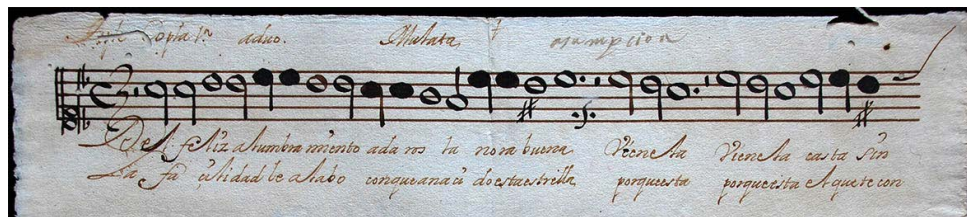 Copla 1ª aduo. Mulata asumpcion
Del feliz alumbramiento adaros la nora buena Vienela Vienela casta sin
La fa cilidad le alabo conque anaci do esta estrella porque esta porque esta el que te con